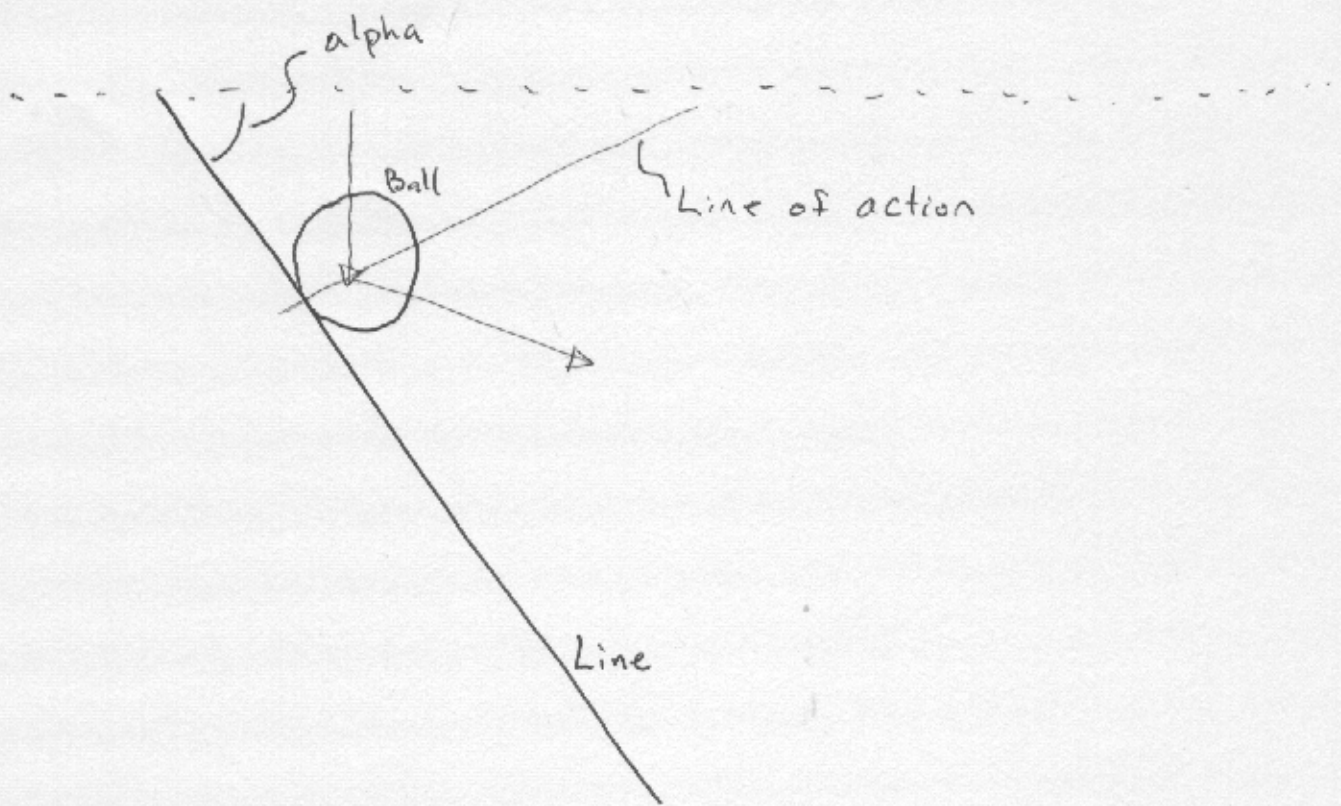 alpha
Ball
Line of action
Line